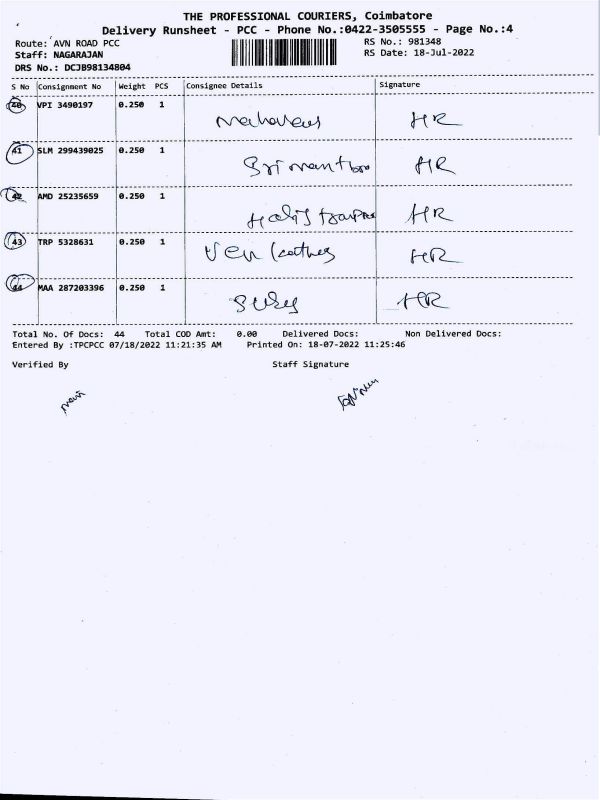 THE PROFESSIONAL COURIERS, Coimbatore
Delivery Runsheet - PCC - Phone No.:0422-3505555 - Page No.:4
Route: AVN ROAD PCC RS No.: 981348
Staff: NAGARAJAN RS Date: 18-Jul-2022
DRS No.: DCJB98134804
S No Consignment No Weight PCS Consignee Details Signature
40 VPI 3490197 0.250 1
HR
41 SLM 299439025 0.250 1
HR
42 AMD 25235659 0.250 1
HR
43 TRP 5328631 0.250 1
HR
44 MAA 287203396 0.250 1
HR
Total No. Of Docs: 44 Total COD Amt: 0.00 Delivered Docs: Non Delivered Docs:
Entered By :TPCPCC 07/18/2022 11:21:35 AM Printed On: 18-07-2022 11:25:46
Verified By Staff Signature